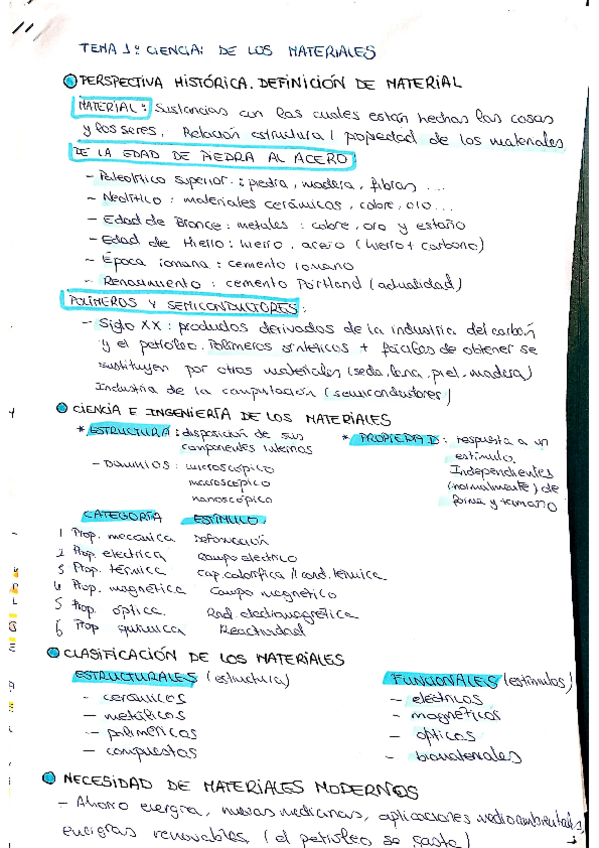 TEMA 1: CIENCIA: DE LOS MATERIALES
PERSPECTIVA HISTÓRICA. DEFINICIÓN DE MATERIAL
MATERIAL: Sustancias con las cuales están hechas las cosas
y los seres. Relación estructura / propiedad de los materiales
DE LA EDAD DE PIEDRA AL ACERO:
- Paleolítico superior: piedra, madera, fibras ...
- Neolítico: materiales cerámicos, cobre, oro...
- Edad de Bronce: metales: cobre, oro y estaño
- Edad de Hierro: hierro, acero (hierro + carbono)
- Época romana: cemento romano
- Renacimiento: cemento Portland (actualidad)
POLÍMEROS Y SEMICONDUCTORES:
- Siglo XX: productos derivados de la industria del carbón
y el petróleo. Polímeros sintéticos + fáciles de obtener se
sustituyen por otros materiales (seda, lana, piel, madera)
Industria de la computación (semiconductores)
CIENCIA E INGENIERÍA DE LOS MATERIALES
* ESTRUCTURA: disposición de sus
componentes internos
- Dominios: microscópico
macroscópico
nanoscópico
* PROPIEDAD: respuesta a un
estímulo.
Independientes
(normalmente) de
forma y tamaño
CATEGORÍA ESTÍMULO:
1 Prop. mecánica Deformación
2 Prop. eléctrica Campo eléctrico
3 Prop. térmica cap. calorífica // cond. térmica
4 Prop. magnética Campo magnético
5 Prop. óptica. Rad. electromagnética
6 Prop química Reactividad
CLASIFICACIÓN DE LOS MATERIALES
ESTRUCTURALES (estructura)
- cerámicos
- metálicos
- poliméricos
- compuestos
FUNCIONALES (estímulos)
- eléctricos
- magnéticos
- ópticos
- biomateriales
NECESIDAD DE MATERIALES MODERNOS
- Ahorro energía, nuevas medicinas, aplicaciones medioambientales,
energías renovables (el petróleo se gasta)